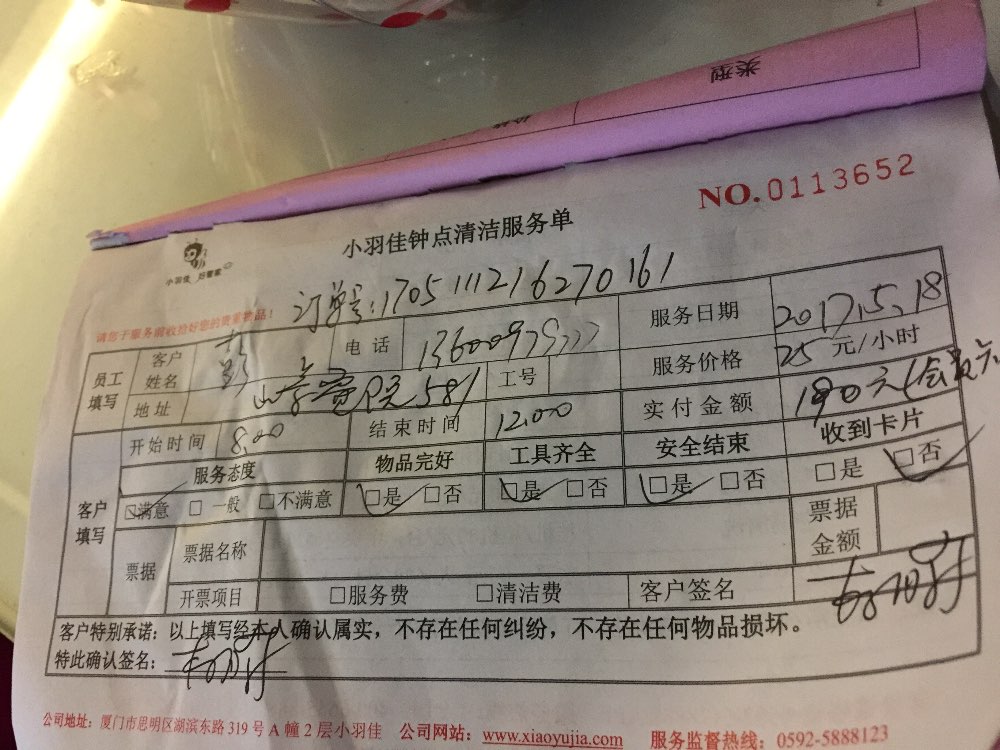 类型
NO.0113652
小羽佳钟点清洁服务单
小羽佳 好管家
订单号:1705111216270161
请您于服务前收拾好您的贵重物品!
员工填写 客户姓名 彭 电话 服务日期 2017.5.18
地址 581 工号 服务价格 25 元/小时
开始时间 8.00 结束时间 12.00 实付金额 190元(会员
客户填写 服务态度 物品完好 工具齐全 安全结束 收到卡片
☑满意 □一般 □不满意 ☑是 □否 ☑是 □否 ☑是 □否 □是 ☑否
票据 票据名称 票据金额
开票项目 □服务费 □清洁费 客户签名
客户特别承诺:以上填写经本人确认属实,不存在任何纠纷,不存在任何物品损坏。
特此确认签名:
公司地址:厦门市思明区湖滨东路 319 号 A 幢 2 层小羽佳 公司网站:www.xiaoyujia.com 服务监督热线:0592-5888123